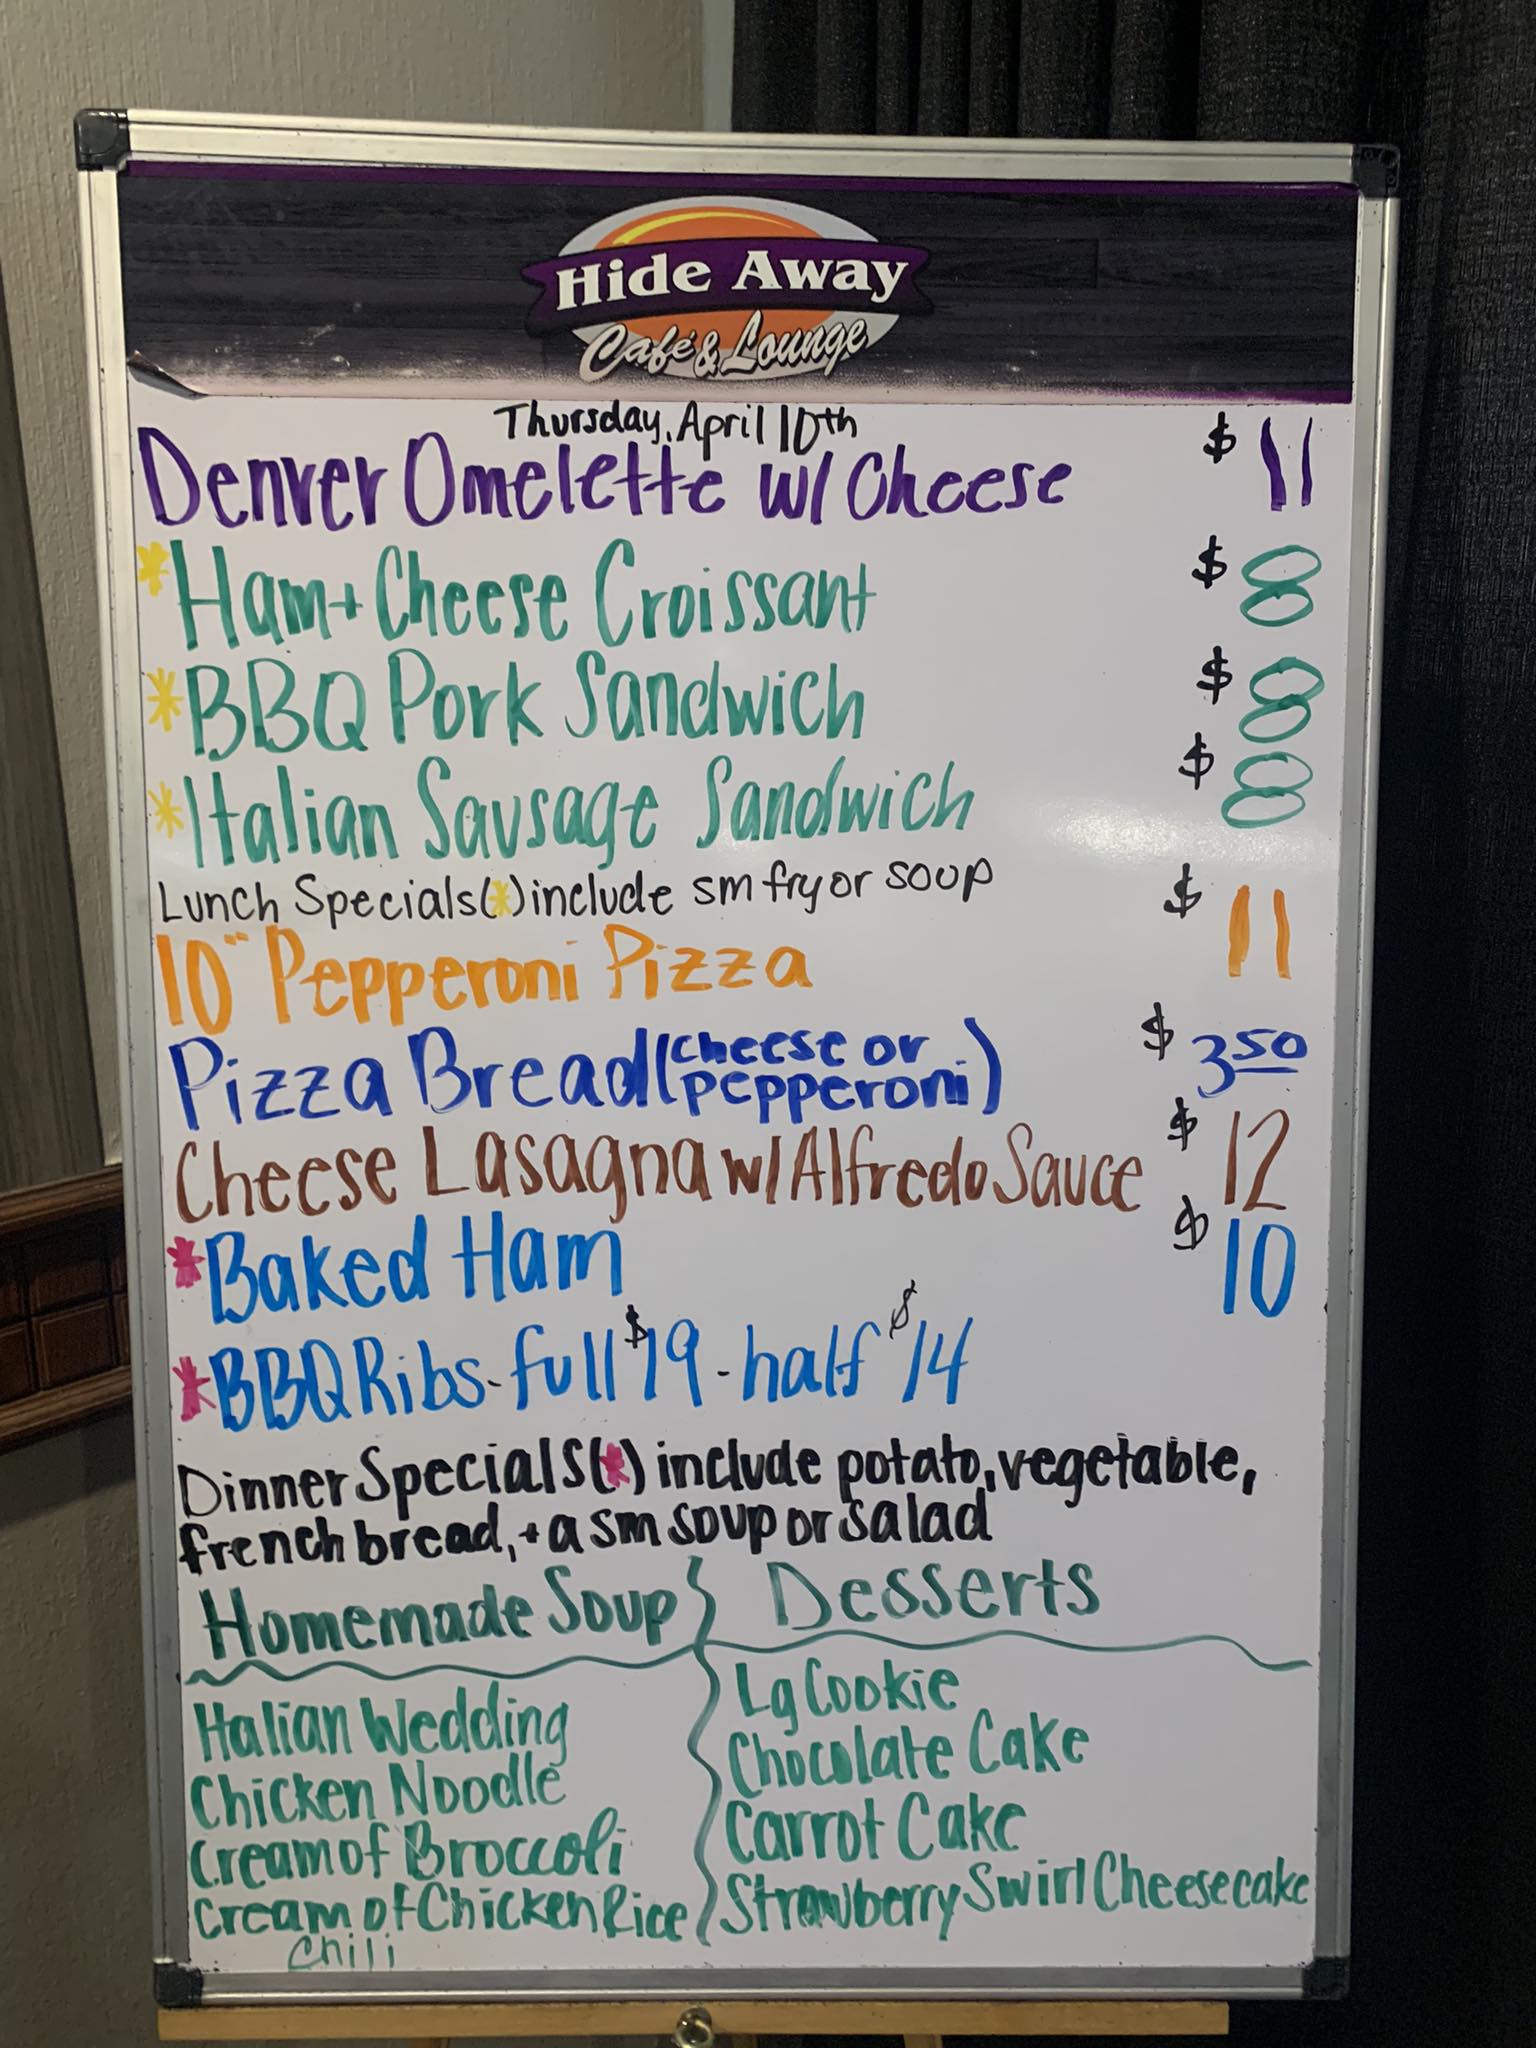 Hide Away
Café & Lounge
Thursday, April 10th
Denver Omelette w/ Cheese $11
*Ham + Cheese Croissant $8
*BBQ Pork Sandwich $8
*Italian Sausage Sandwich $8
Lunch Specials(*) include sm fry or soup
10" Pepperoni Pizza $11
Pizza Bread (cheese or pepperoni) $3.50
Cheese Lasagna w/ Alfredo Sauce $12
*Baked Ham $10
*BBQ Ribs - full $19 - half $14
Dinner Specials(*) include potato, vegetable,
french bread, + a sm soup or salad
Homemade Soup
Italian Wedding
Chicken Noodle
Cream of Broccoli
Cream of Chicken Rice
Chili
Desserts
Lg Cookie
Chocolate Cake
Carrot Cake
Strawberry Swirl Cheesecake